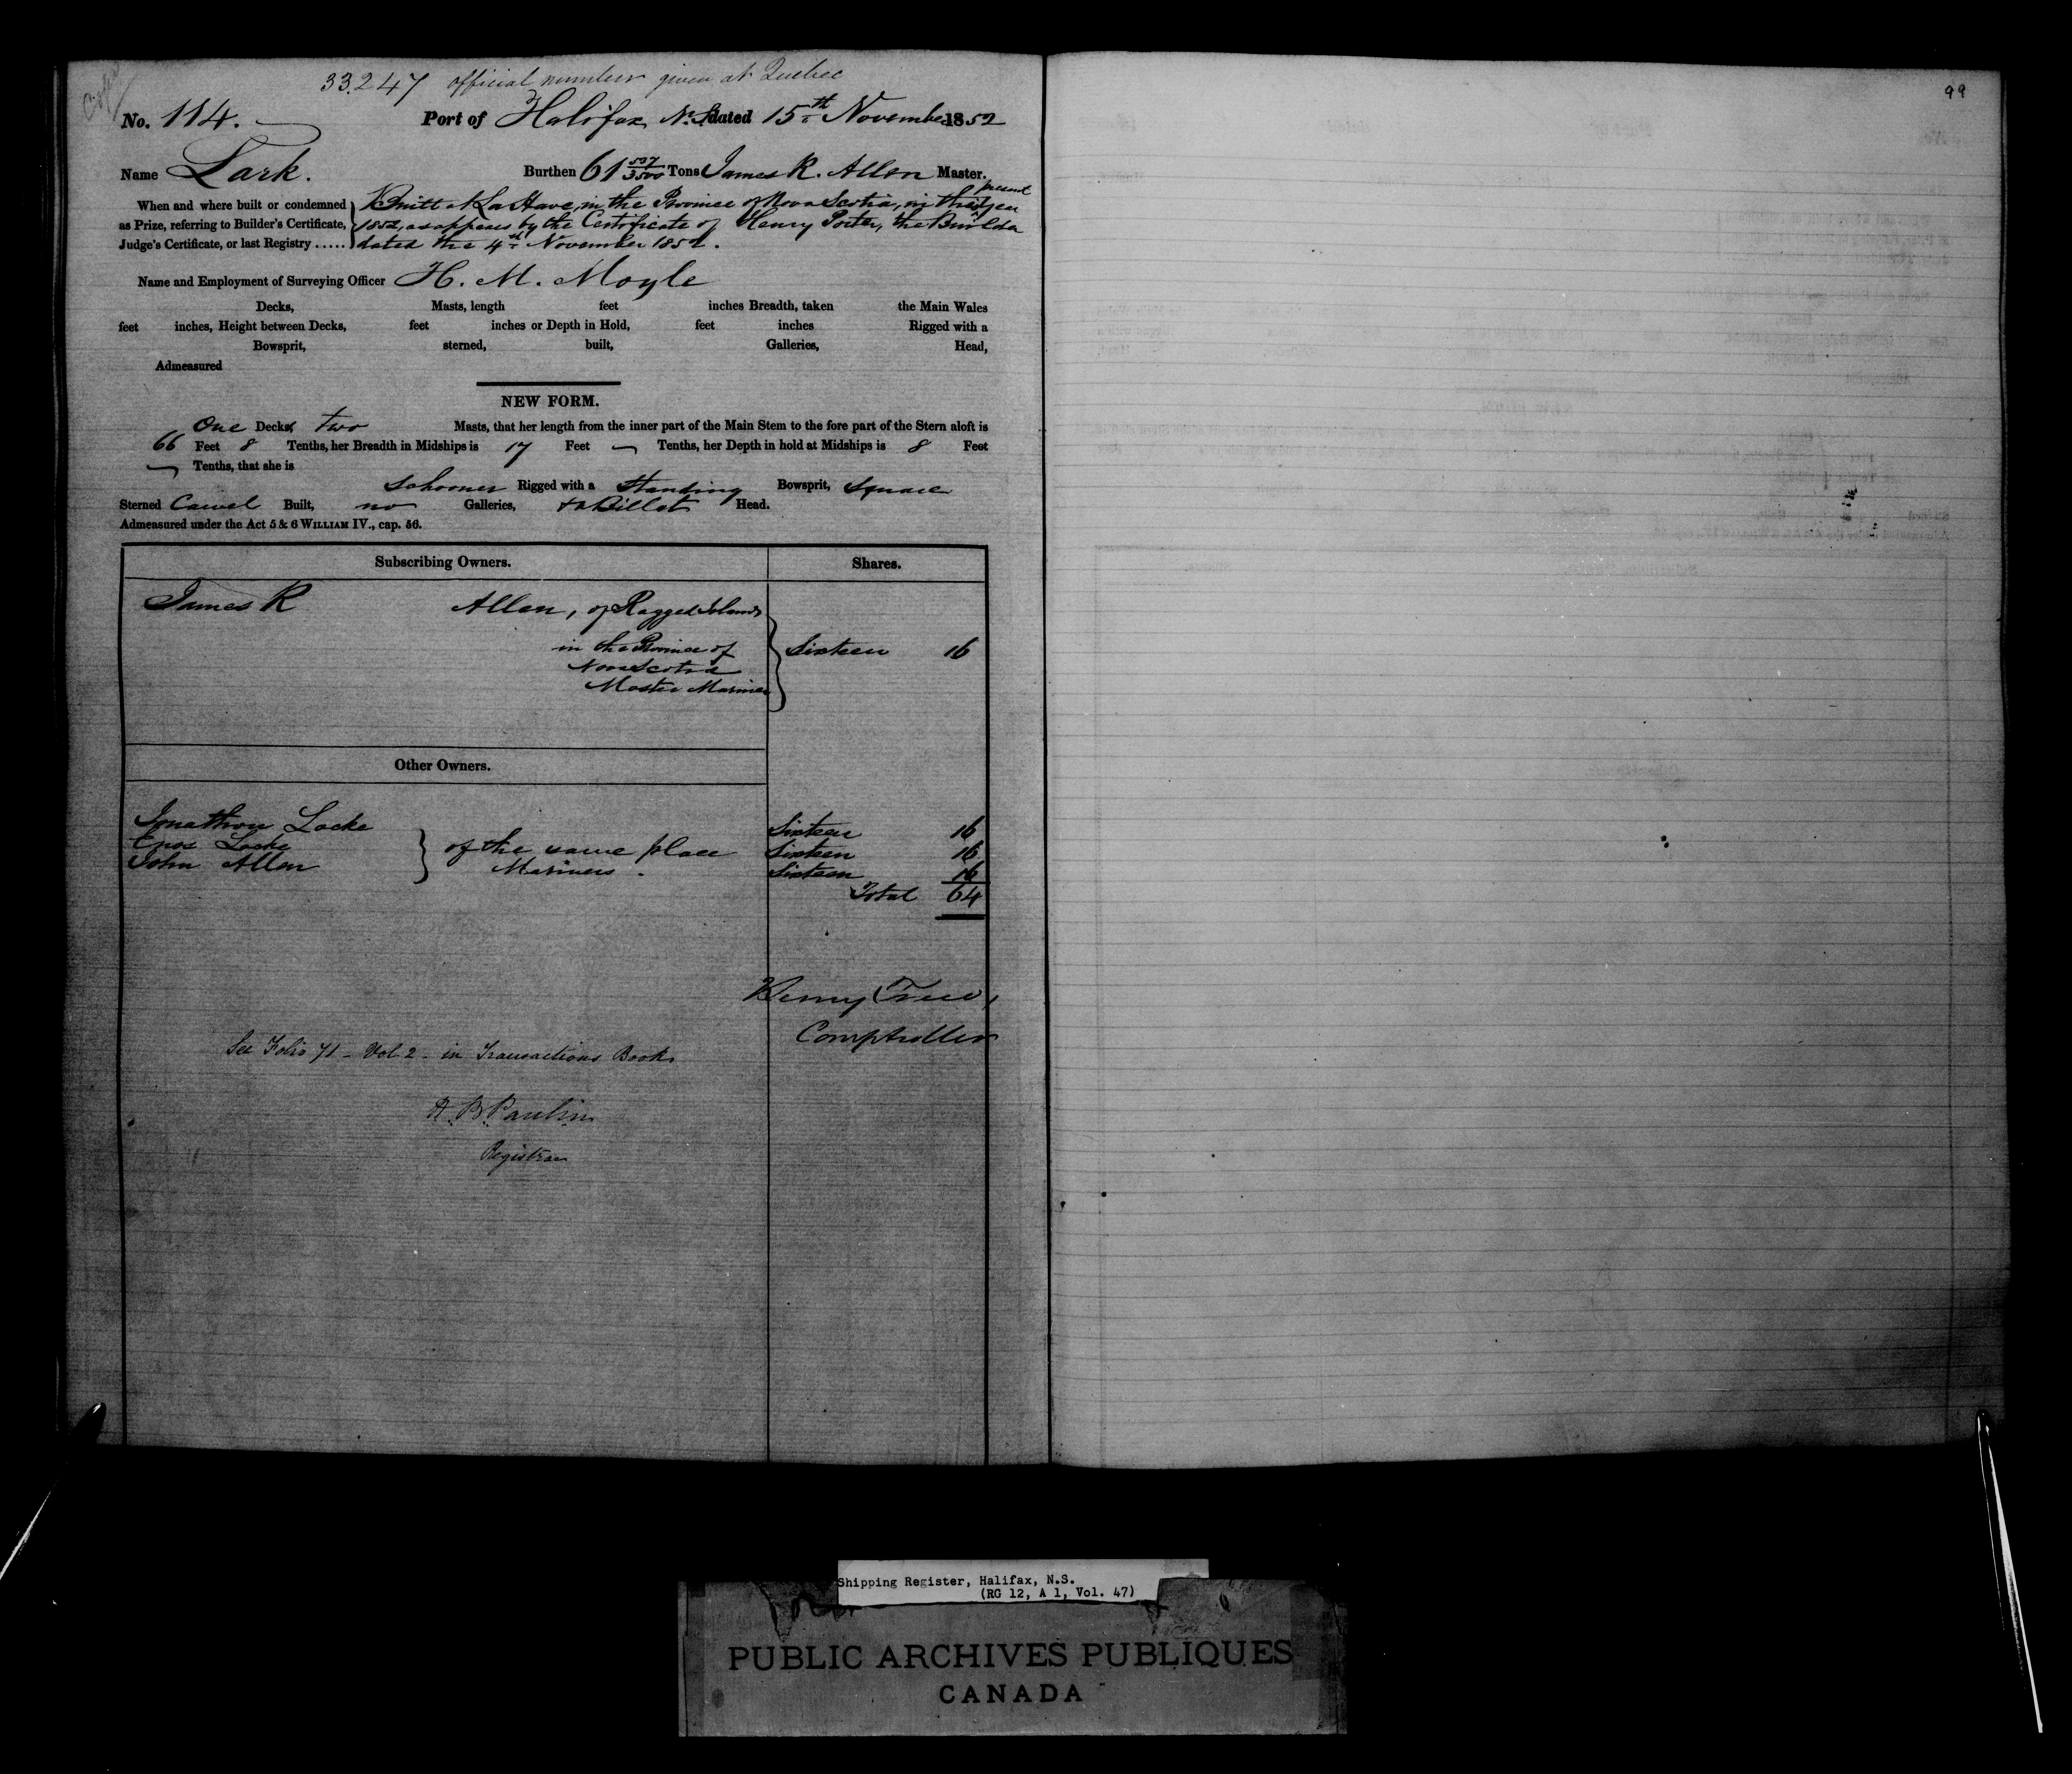 33.247 official number given at Quebec
99
No. 114. Port of Halifax N.S. dated 15th November 1852
Name Lark. Burthen 61 507/3500 Tons James R. Allen Master.
present
When and where built or condemned
as Prize, referring to Builder's Certificate,
Judge's Certificate, or last Registry .....
Built at La Have, in the Province of Nova Scotia, in the year
1852, as appears by the Certificate of Henry Porter, the Builder
dated the 4th November 1852.
Name and Employment of Surveying Officer H. M. Moyle
Decks, Masts, length feet inches Breadth, taken the Main Wales
feet inches, Height between Decks, feet inches or Depth in Hold, feet inches Rigged with a
Bowsprit, sterned, built, Galleries, Head,
Admeasured
NEW FORM.
One Decks, two Masts, that her length from the inner part of the Main Stem to the fore part of the Stern aloft is
66 Feet 8 Tenths, her Breadth in Midships is 17 Feet — Tenths, her Depth in hold at Midships is 8 Feet
— Tenths, that she is
Schooner Rigged with a Standing Bowsprit, Square
Sterned Carvel Built, no Galleries, Billet Head.
Admeasured under the Act 5 & 6 WILLIAM IV., cap. 56.
Subscribing Owners. Shares.
James R Allen, of Ragged Islands
in the Province of Sixteen 16
Nova Scotia
Master Mariner
Other Owners.
Jonathan Locke Sixteen 16
Enos Locke of the same place Sixteen 16
John Allen Mariners. Sixteen 16
Total 64
Henry Trew,
Comptroller
See Folio 71 - Vol. 2 - in Transactions Book
R. B. Paulin
Registrar
Shipping Register, Halifax, N.S.
(RG 12, A 1, Vol. 47)
PUBLIC ARCHIVES PUBLIQUES
CANADA